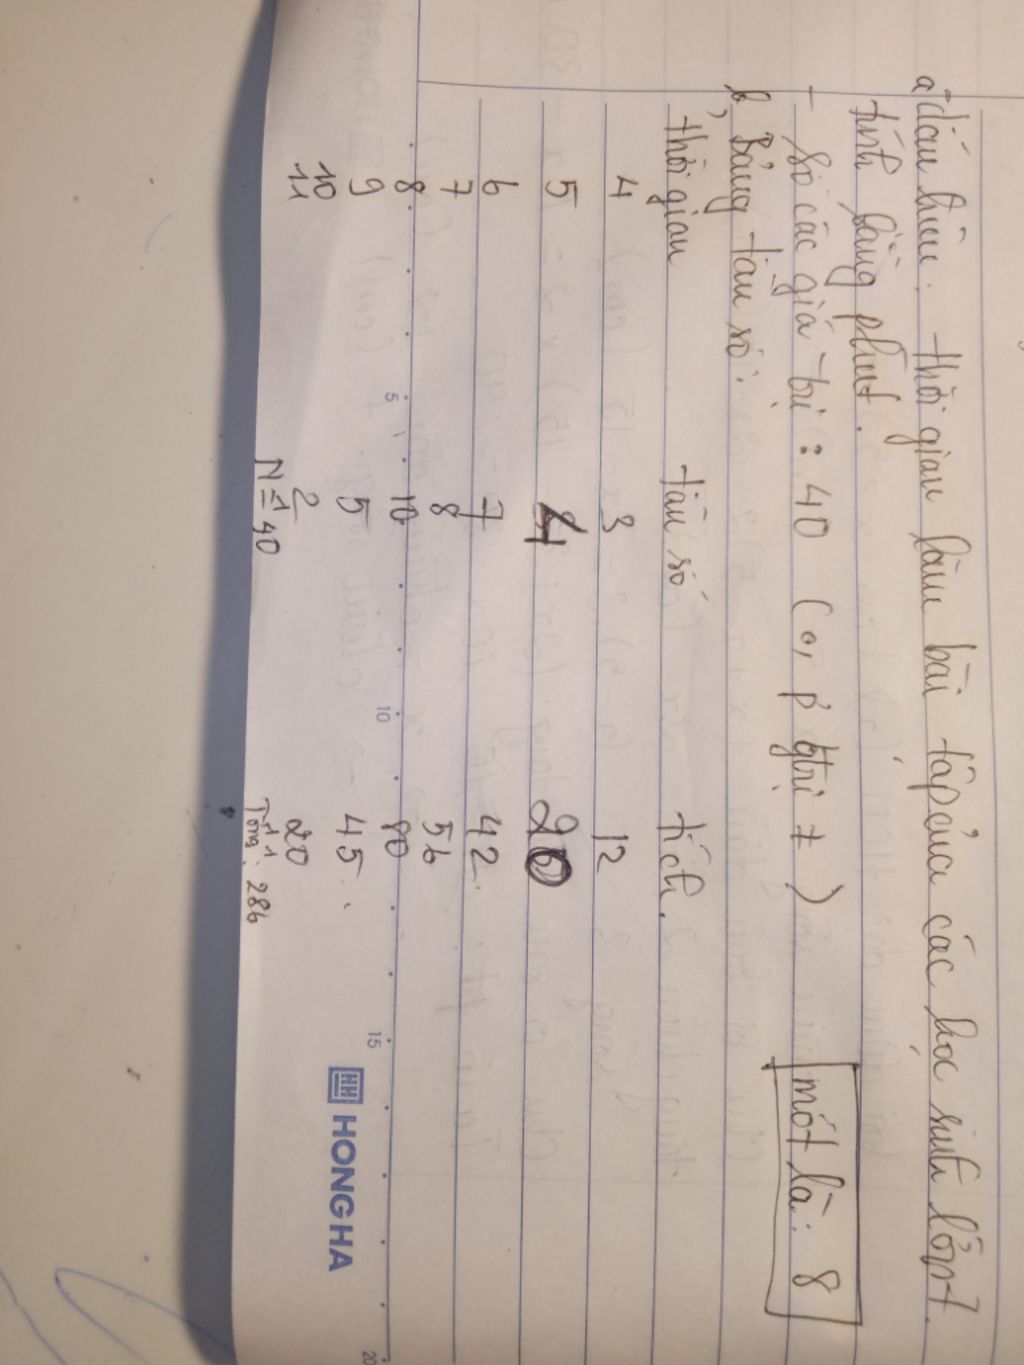 a, dấu hiệu: thời gian làm bài tập của các học sinh lớp 7
tính bằng phút.
- số các giá trị: 40 (có 8 gtrị ≠)
mốt là: 8
b, Bảng tần số:
thời gian tần số tích.
4 3 12
5 4 20
6 7 42
7 8 56
8 10 80
9 5 45
10 2 20
11 1 11
N = 40 Tổng: 286
5 10 15 20
HH HONG HA